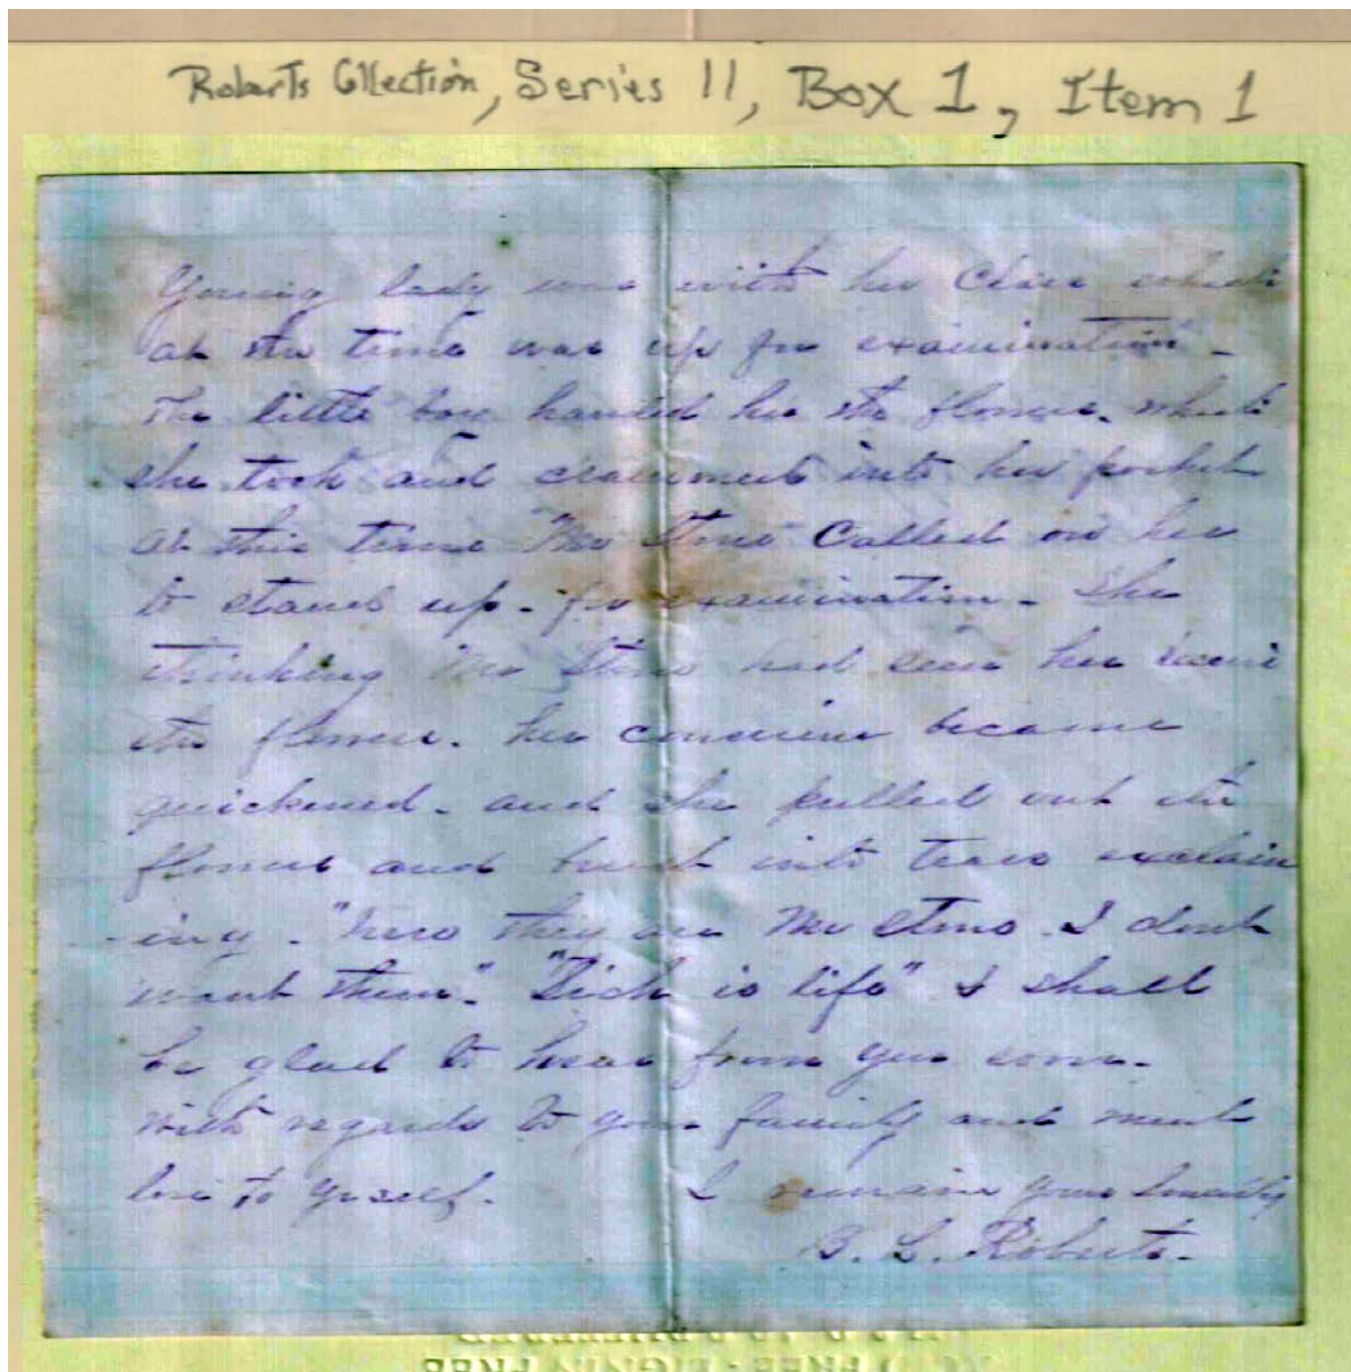 Roberts Collection, Series 11, Box 1, Item 1
Young lady was with her Class which
at the time was up for examination -
The little boy handed her the flowers. which
she took and crammed into her pocket
at this time Mr Stone Called on her
to stand up. for examination - She
thinking Mr Stone had seen her
the flowers. her became
quickened. and she pulled out the
flowers and burst into tears exclaim
-ing. "here they are Mr Stone. I dont
want them." "Sich is life" I shall
be glad to hear from you soon.
with regards to your family and much
love to yrself. I remain yours
B. L. Roberts.